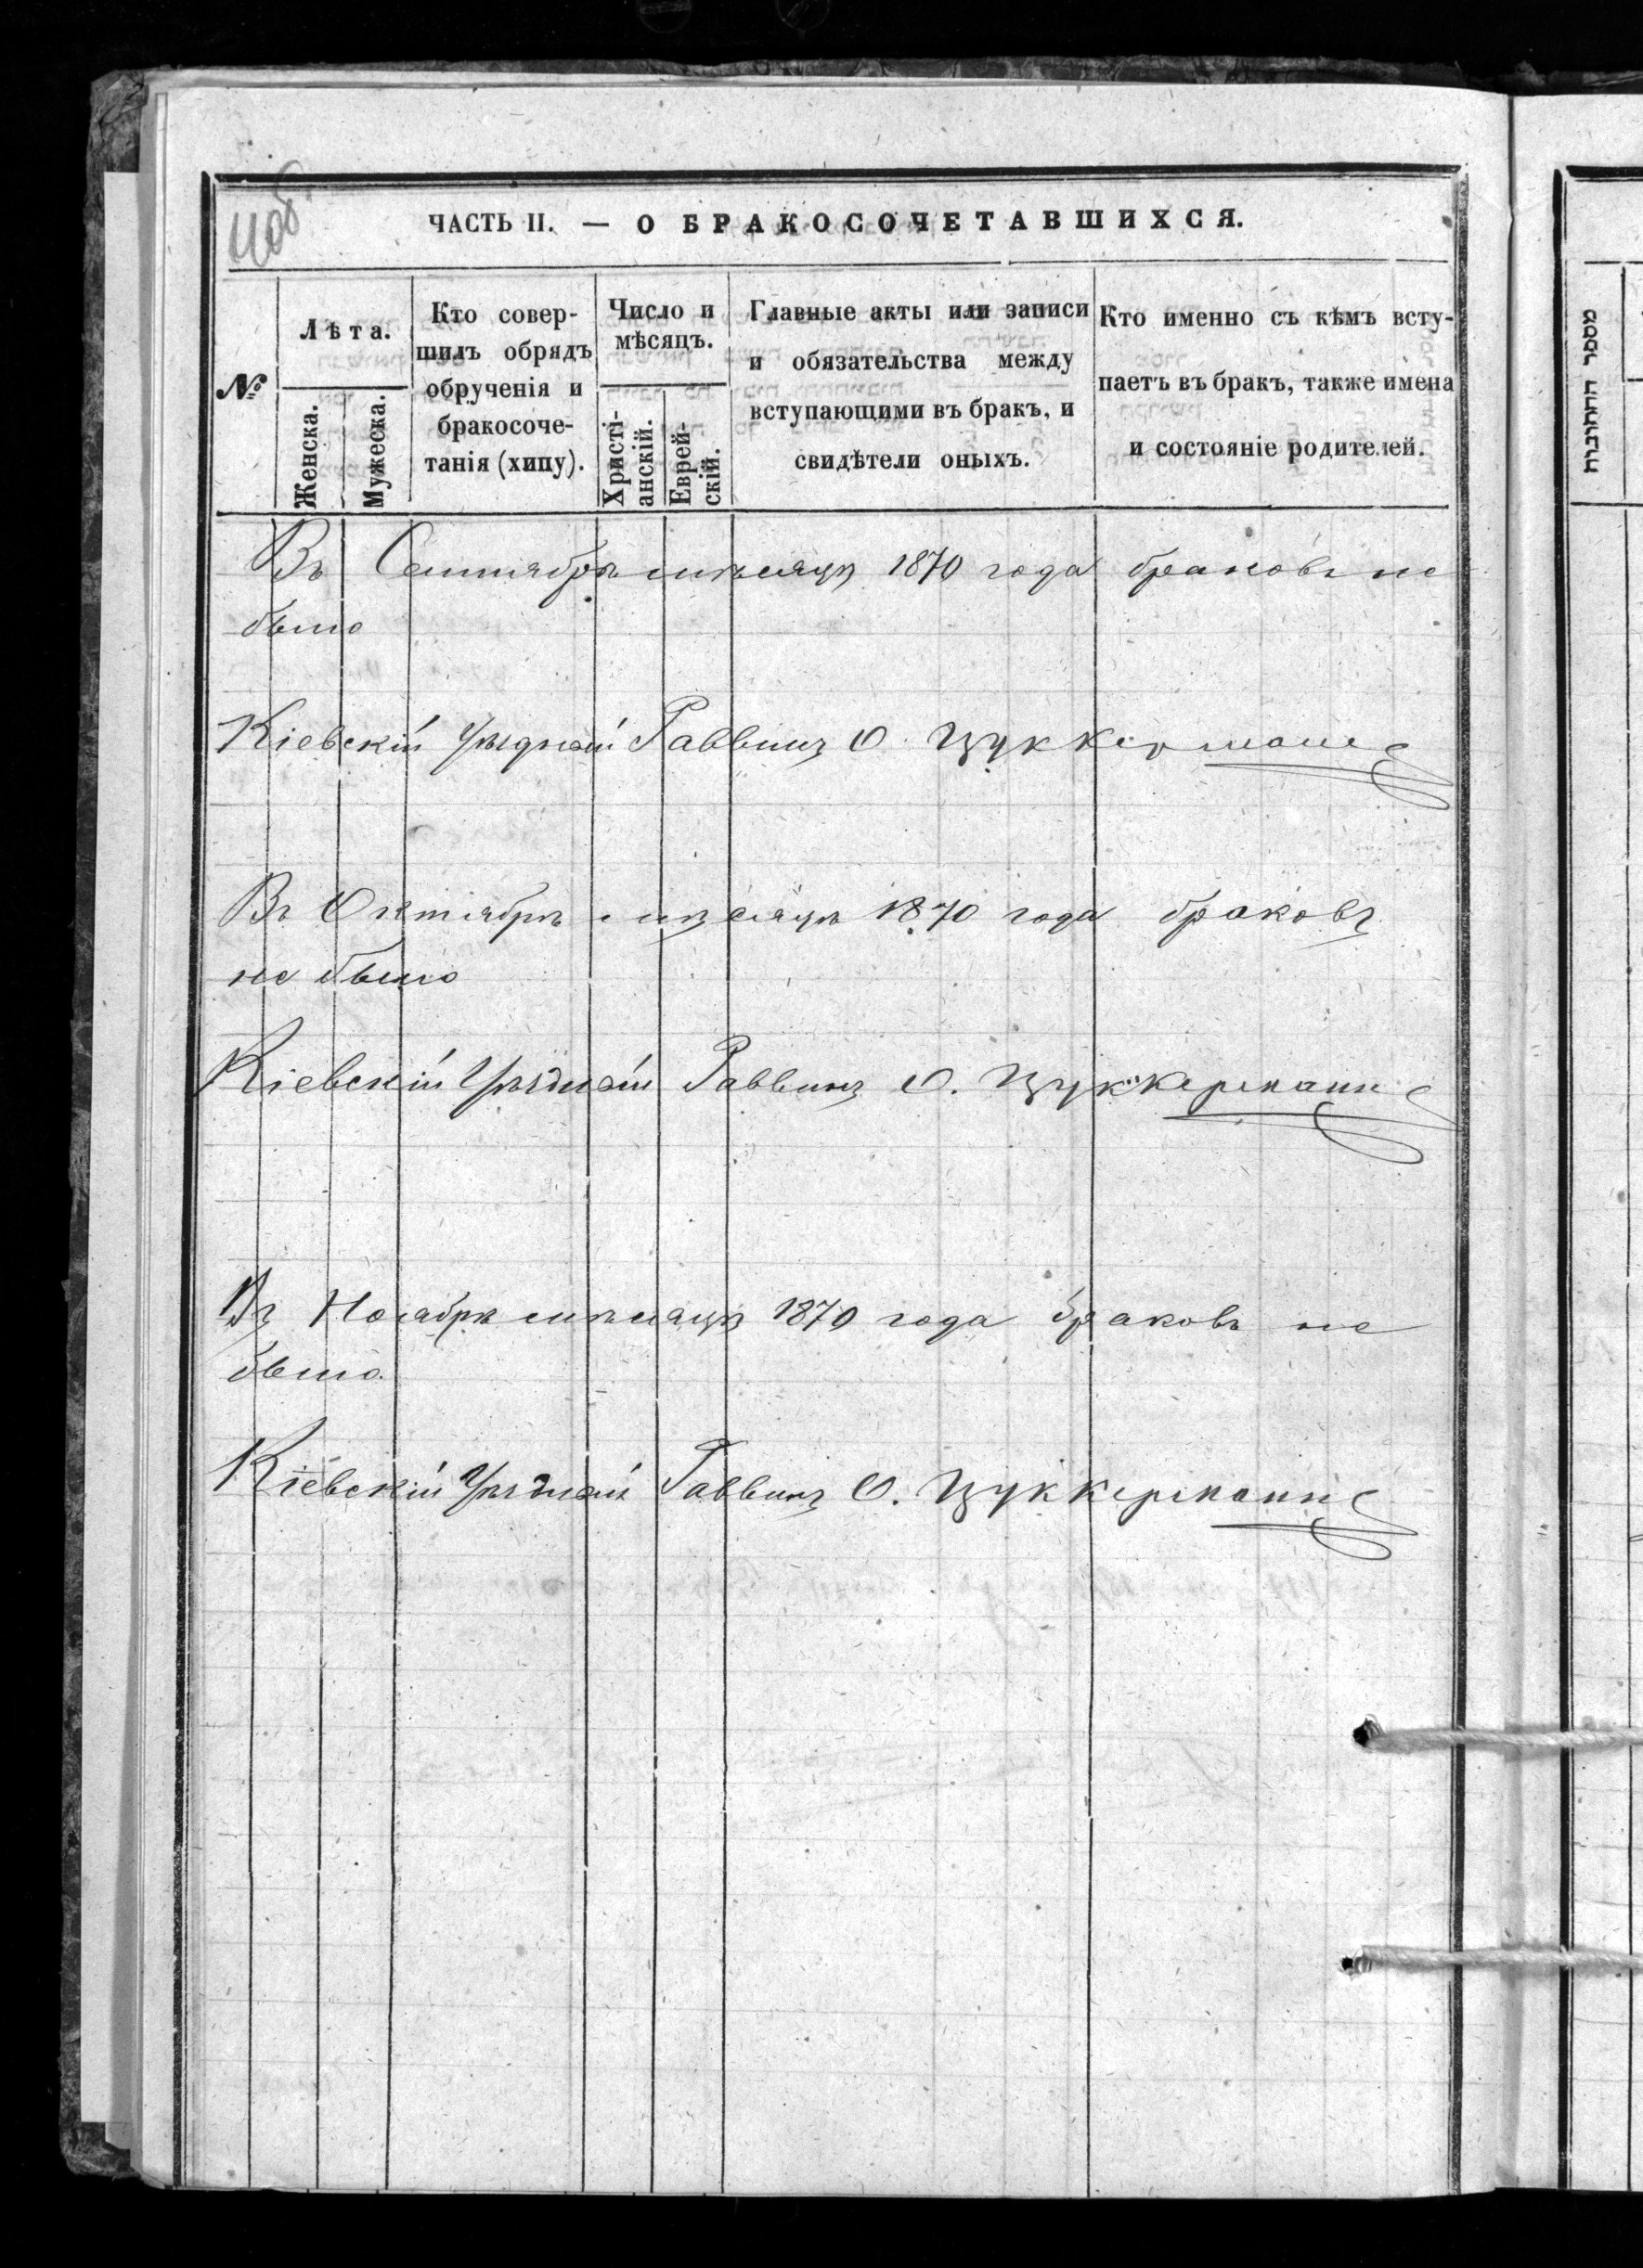 4об.
ЧАСТЬ II. — О БРАКОСОЧЕТАВШИХСЯ.
№
Лѣта.
Женска.
Мужеска.
Кто совер-
шилъ обрядъ
обрученія и
бракосоче-
танія (хипу).
Число и
мѣсяцъ.
Христі-
анскій.
Еврей-
скій.
Главные акты или записи
и обязательства между
вступающими въ бракъ, и
свидѣтели оныхъ.
Кто именно съ кѣмъ всту-
паетъ въ бракъ, также имена
и состояніе родителей.
Въ Сентябрѣ мѣсяцѣ 1870 года браковъ не
было
Кіевскій Уѣздный Раввинъ О. Цуккерманъ
Въ Октябрѣ мѣсяцѣ 1870 года браковъ
не было
Кіевскій Уѣздный Раввинъ О. Цуккерманъ
Въ Ноябрѣ мѣсяцѣ 1870 года браковъ не
было.
Кіевскій Уѣздный Раввинъ О. Цуккерманъ
מספר החתונות